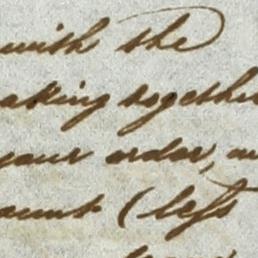 with the
aking together
your order,
ount (left